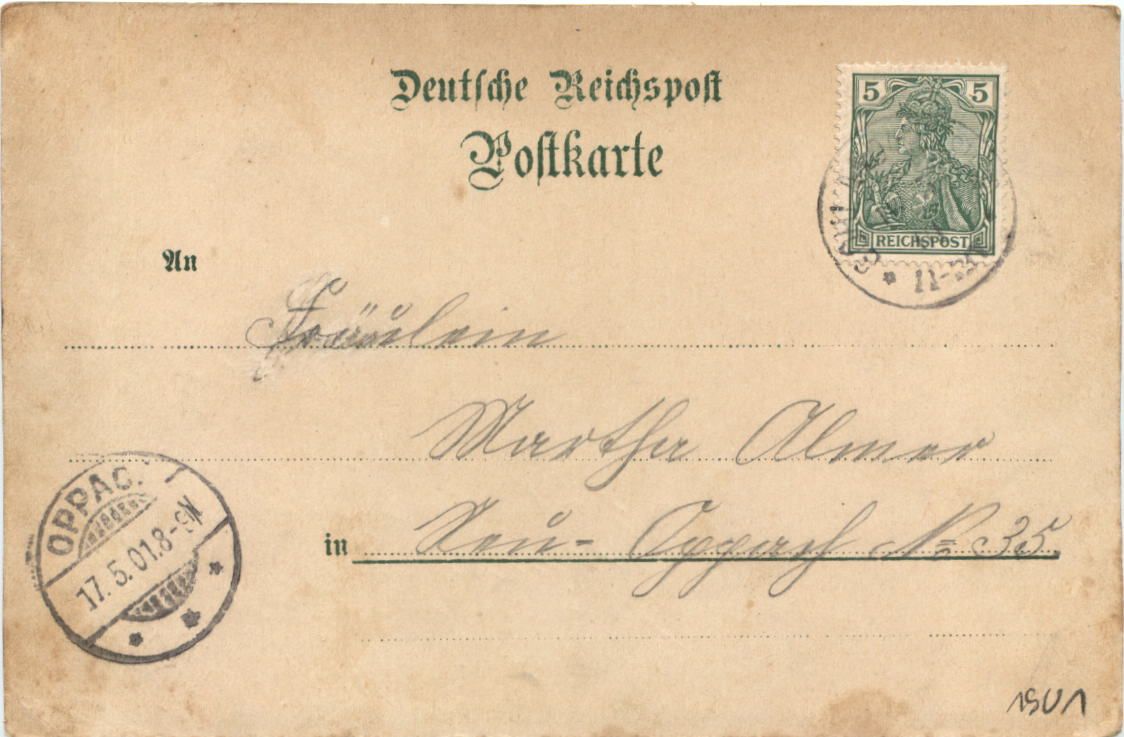 Deutsche Reichspost
Postkarte
5 5
REICHSPOST
11-12
An
Fräulein
Martha Almer
in Neu-Oppach No 35.
OPPAC.
17.5.01.8-9N
1901